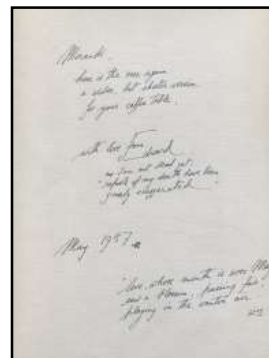 Miranda,
here is the once upon
a video, but shorter version
for your coffee table.
with love from
Edward
no I'm not dead yet,
"reports of my death have been
grossly exaggerated"
May 1957
"love, whose month is ever May
saw a blossom, passing fair
playing in the wanton air"